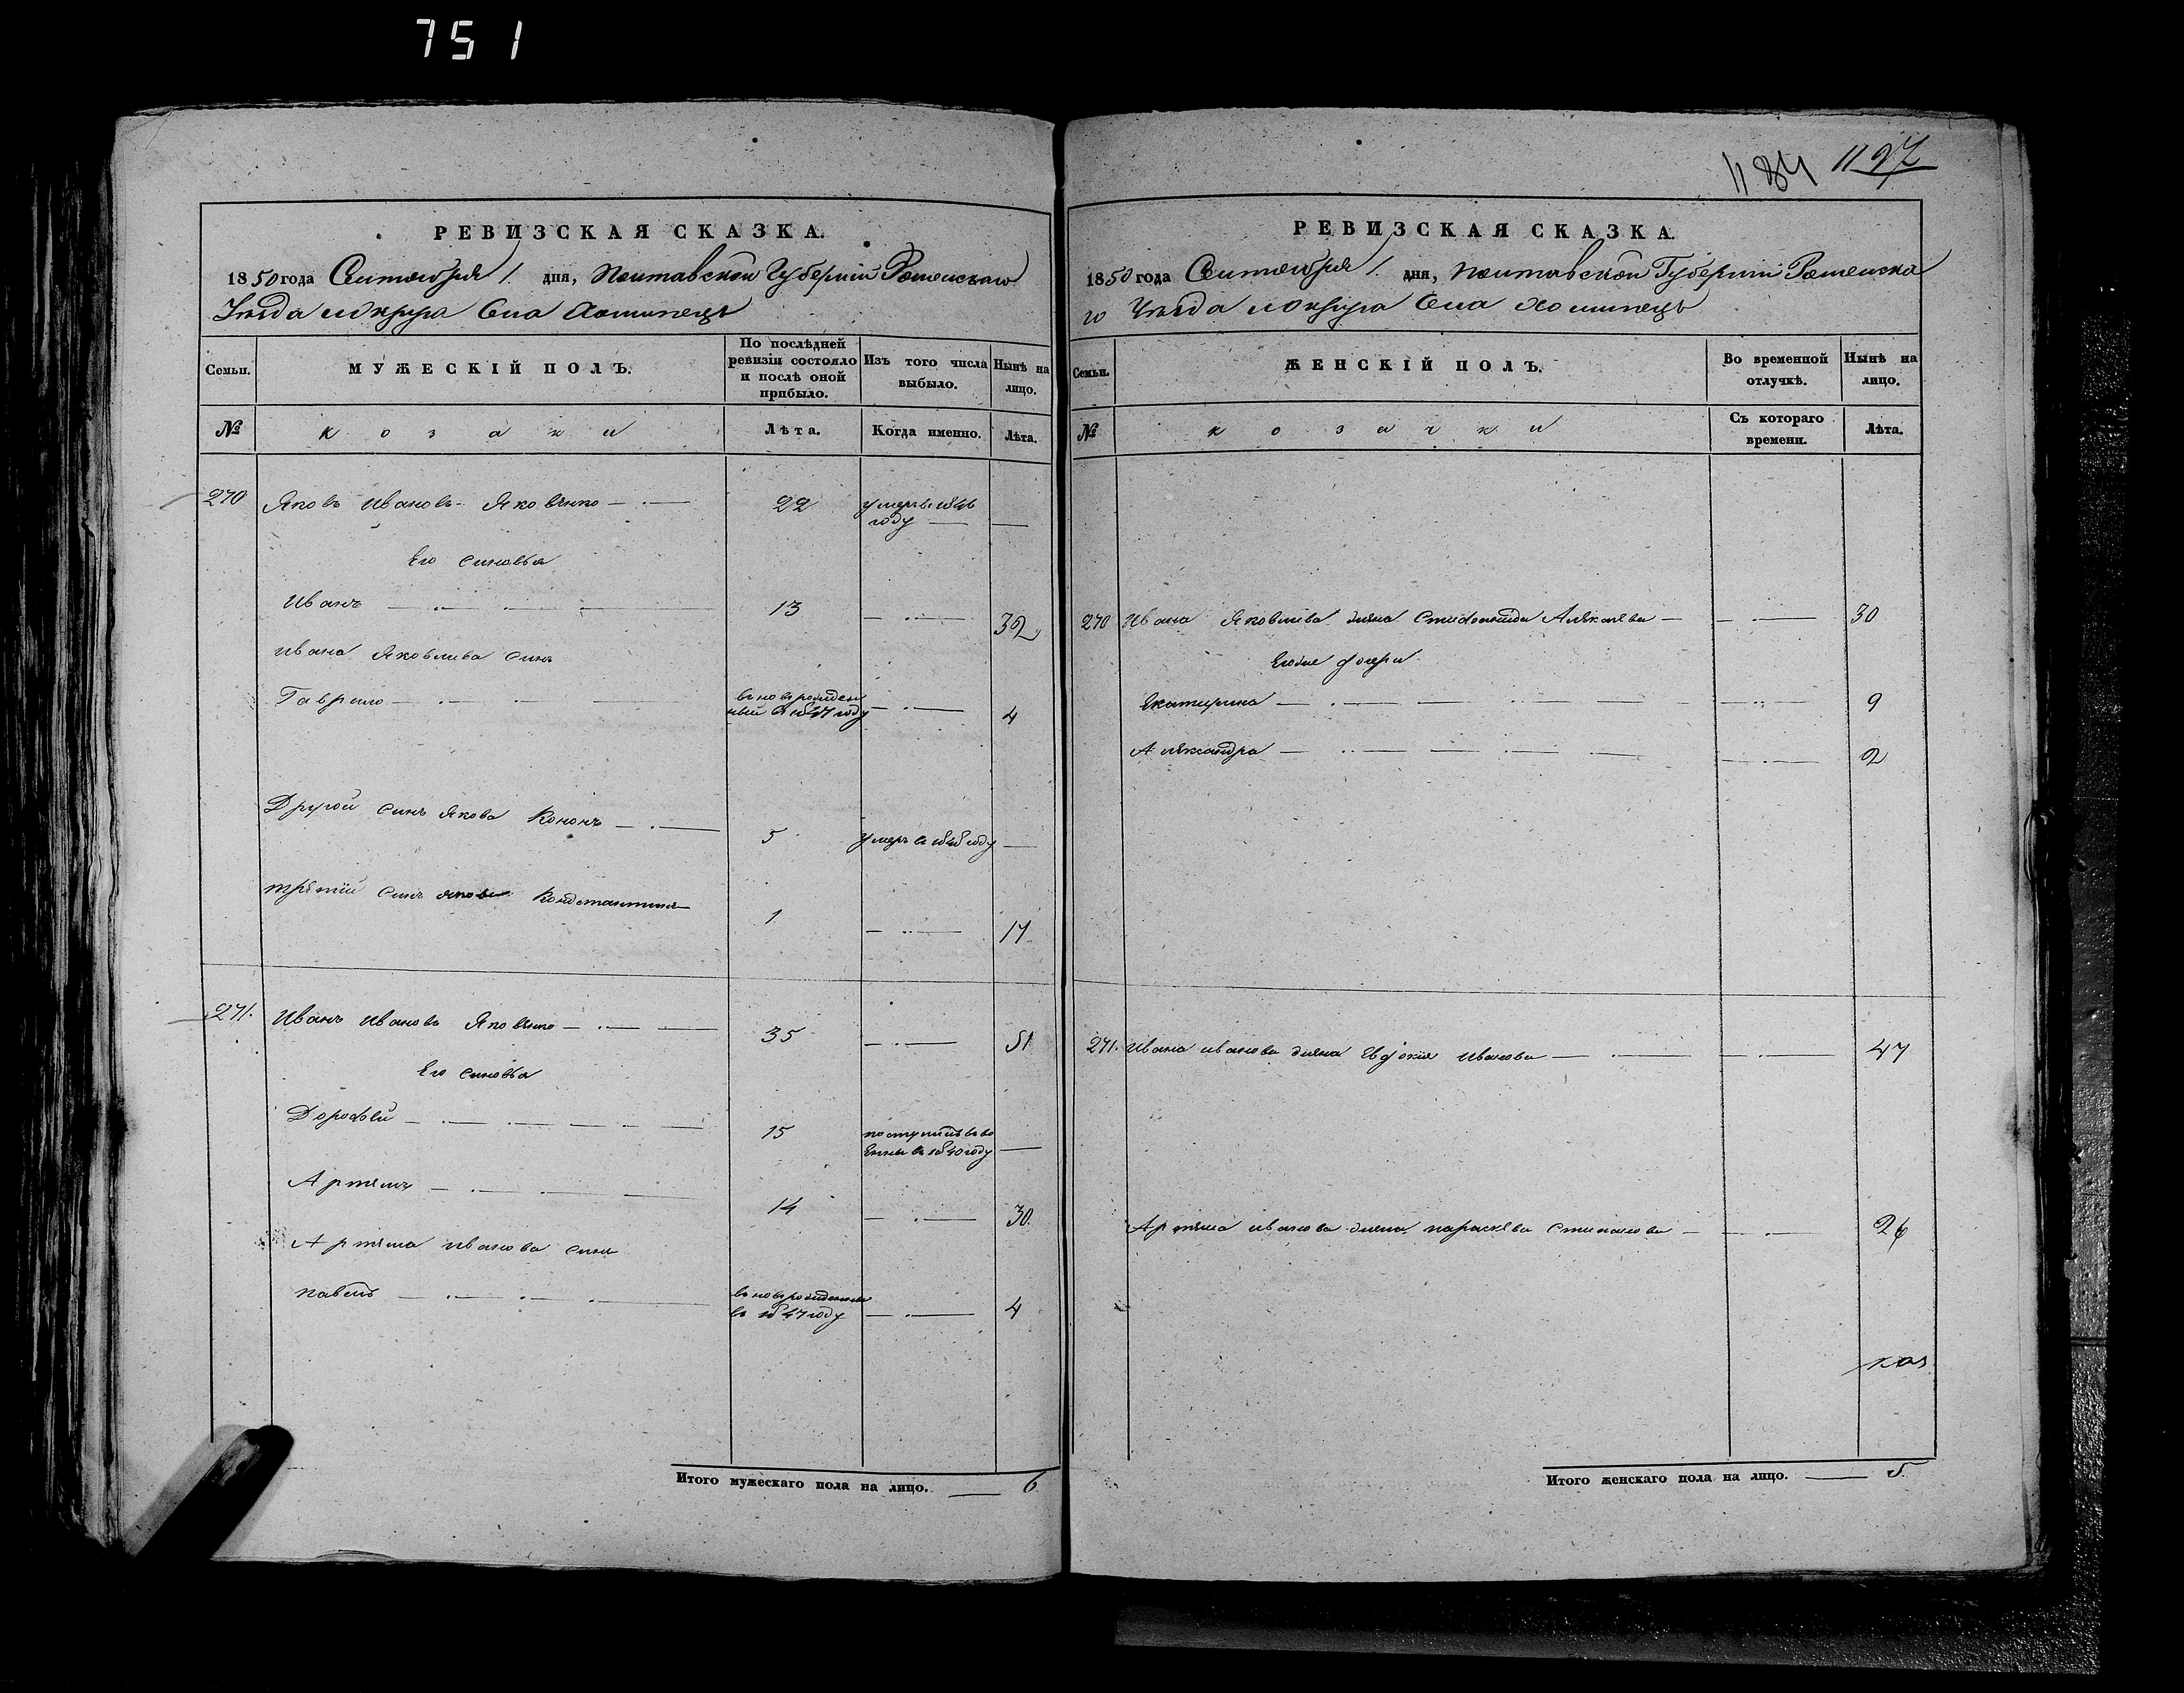 751
1184 1197
РЕВИЗСКАЯ СКАЗКА.
1850 года Сентября 1. дня, Полтавской Губернии Роменскаго
Уезда села Хоминецъ
Семьи.
МУЖЕСКІЙ ПОЛЪ.
По послѣдней ревизіи состояло и послѣ оной прибыло.
Изъ того числа выбыло.
Нынѣ на лицо.
№
козаки
Лѣта.
Когда именно.
Лѣта.
270 Яковъ Ивановъ Яковѣнко 22 умеръ
году
Его синовья
Иванъ 13 32
Ивана Яковлива синъ
Гаврило вновь рожден
ный в 1847 году 4
Другой синъ Якова Кононъ 5 умеръ в году
трѣтий синъ Якова Константинъ 1 17
271. Иванъ Ивановъ Яковѣнко 35 51
Его синовья
Дорофѣй 15 поступилъ в во
енны в 1840 году
Артѣмъ 14 30.
Артѣма Иванова синъ
Павелъ вновь рожденный
в 1847 году 4
Итого мужескаго пола на лицо. 6.
РЕВИЗСКАЯ СКАЗКА.
1850 года Сентября 1. дня, Полтавской Губернии Роменска
го Уезда села Хоминецъ
Семьи.
ЖЕНСКІЙ ПОЛЪ.
Во временной отлучкѣ.
Нынѣ на лицо.
№
козачки
Съ котораго времени.
Лѣта.
270 Ивана Яковлива жена 30
Егоже дочери
Екатирина 9
Алѣксандра 2
271. Ивана Иванова жена Евдокия Иванова 47
Артѣма Иванова жена Параскева Стипанова 26
коз
Итого женскаго пола на лицо. 5.